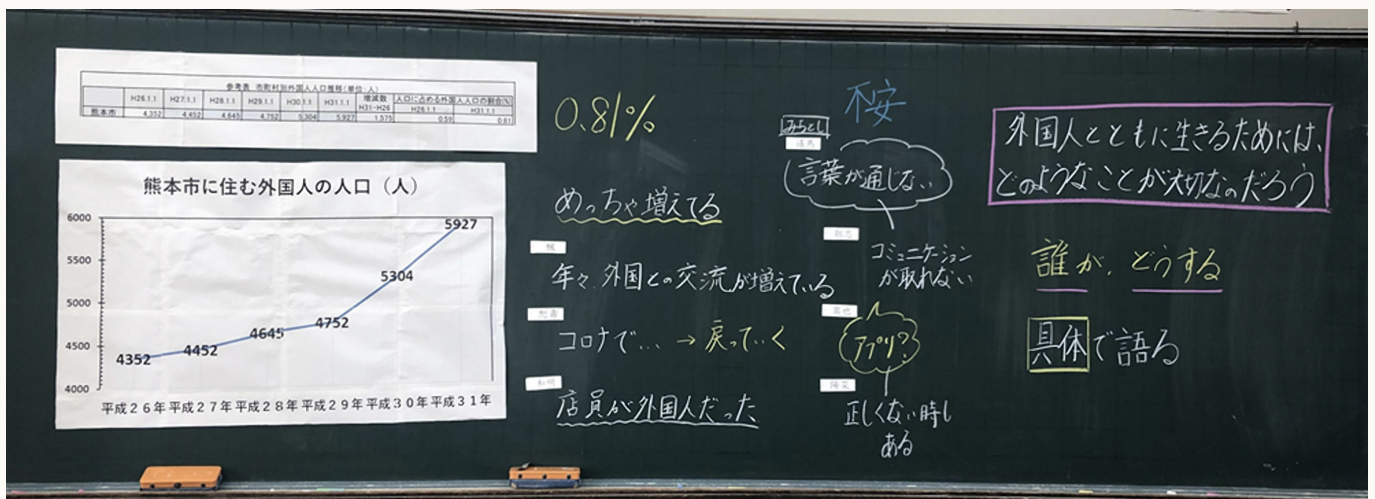 参考表 市町村別外国人人口推移(単位:人)
H26.1.1 H27.1.1 H28.1.1 H29.1.1 H30.1.1 H31.1.1 増減数 H31-H26 人口に占める外国人人口の割合(%)
H26.1.1 H31.1.1
熊本市 4,352 4,452 4,645 4,752 5,304 5,927 1,575 0.59 0.81
熊本市に住む外国人の人口(人)
6000
5500
5000
4500
4000
4352
4452
4645
4752
5304
5927
平成26年 平成27年 平成28年 平成29年 平成30年 平成31年
0.81%
めっちゃ増えてる
年々、外国との交流が増えている
コロナで… → 戻っていく
店員が外国人だった
不安
みらとし
言葉が通じない
コミュニケーション
が取れない
アプリ?
正しくない時も
ある
外国人とともに生きるためには、
どのようなことが大切なのだろう
誰が、どうする
具体で語る